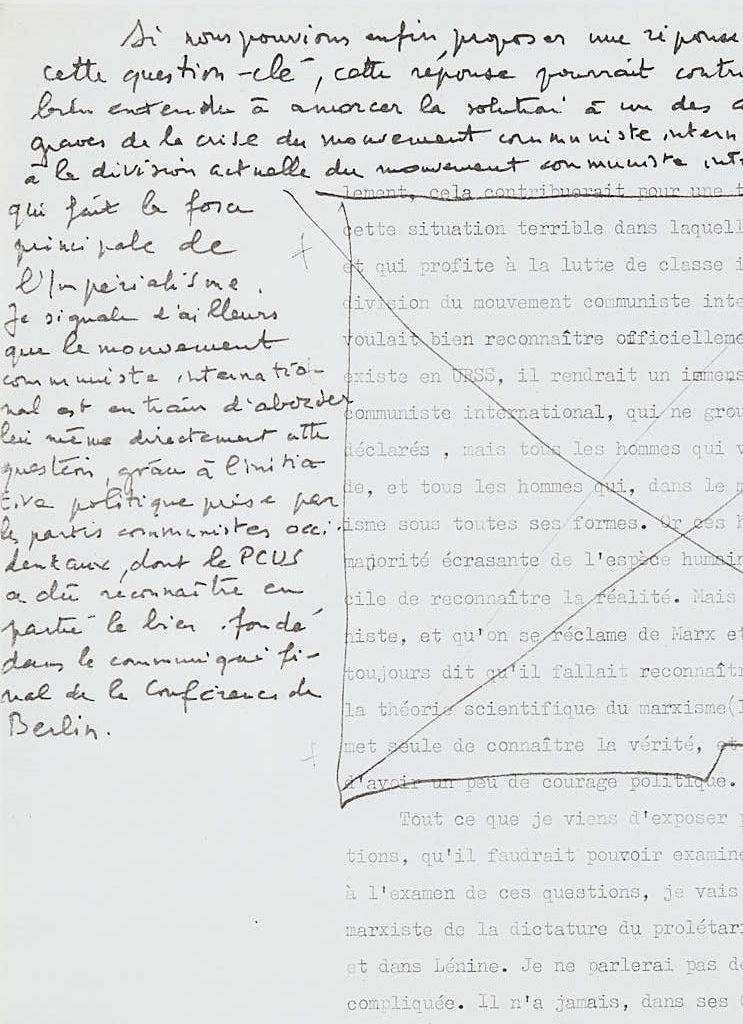 Si nous pouvions enfin proposer une réponse
cette question-clé, cette réponse pourrait contri
bien entendu à amorcer la solution à un des
graves de la crise du mouvement communiste intern
à la division actuelle du mouvement communiste int
qui fait la force
principale de
l'Impérialisme.
Je signale d'ailleurs
que le mouvement
communiste internatio-
nal est en train d'aborder
lui même directement cette
question, grâce à l'initia
tive politique prise par
les partis communistes occi-
dentaux, dont le PCUS
a dû reconnaître en
partie le bien-fondé
dans le communiqué fi-
nal de la Conférence de
Berlin.
lement, cela contribuerait pour une t
cette situation terrible dans laquell
et qui profite à la lutte de classe i
division du mouvement communiste inte
voulait bien reconnaître officielleme
existe en URSS, il rendrait un immens
communiste international, qui ne grou
déclarés , mais tous les hommes qui v
de, et tous les hommes qui, dans le m
isme sous toutes ses formes. Or ces h
majorité écrasante de l'espèce humain
cile de reconnaître la réalité. Mais
niste, et qu'on se réclame de Marx et
toujours dit qu'il fallait reconnaîtr
la théorie scientifique du marxisme(l
met seule de connaître la vérité, et
d'avoir un peu de courage politique.
Tout ce que je viens d'exposer p
tions, qu'il faudrait pouvoir examine
à l'examen de ces questions, je vais
marxiste de la dictature du prolétari
et dans Lénine. Je ne parlerai pas de
compliquée. Il n'a jamais, dans ses